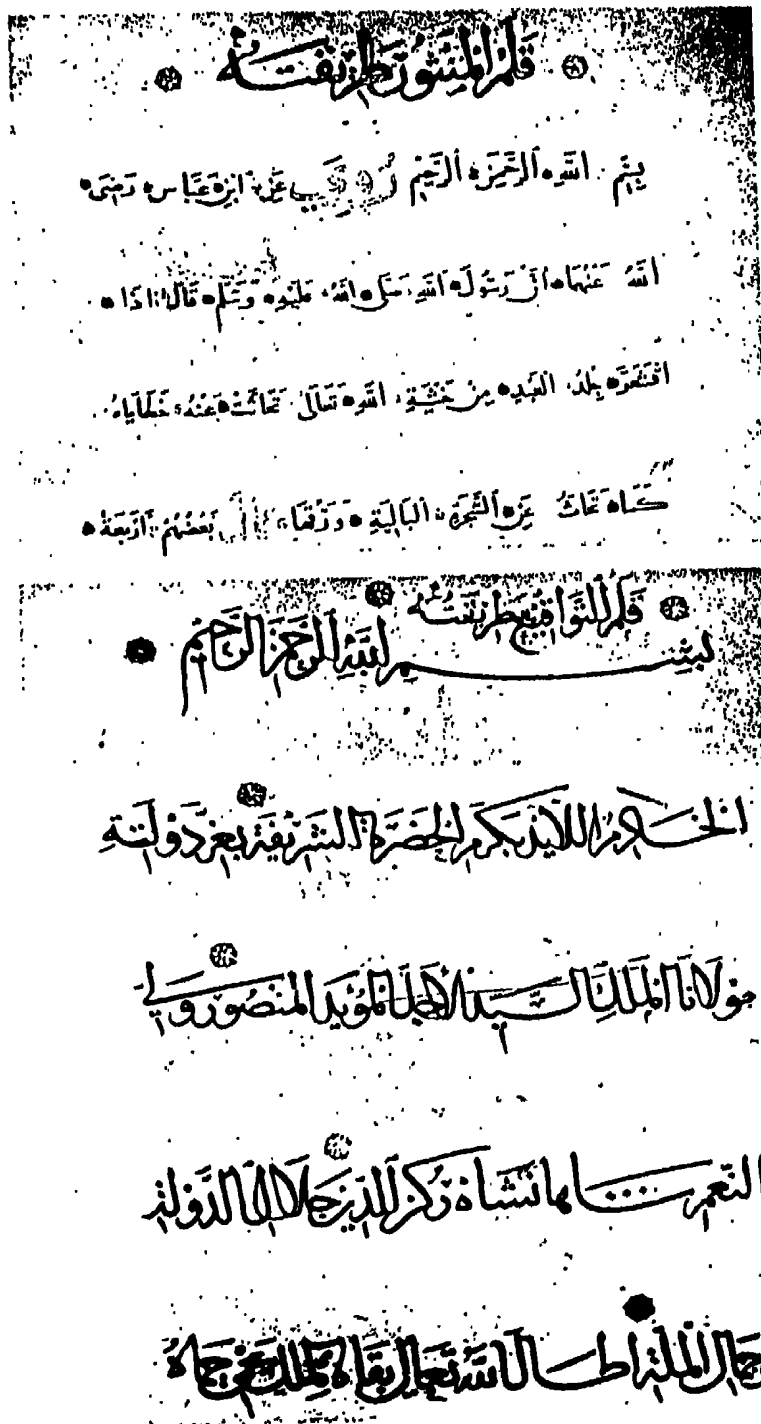 قلم المنثور طريقته
بسم الله الرحمن الرحيم عن ابن عباس رضى
الله عنهما أن رسول الله صلى الله عليه وسلم قال اذا
اقشعر جلد العبد من خشية الله تعالى تحاتت عنه خطاياه
كما تحات عن الشجرة البالية ورقها بعضهم أربعة
قلم التواقيع طريقته
بسم الله الرحمن الرحيم
الخادم اللائذ بكرم الحضرة الشريفة بعز دولة
مولانا الملك السيد الاجل المؤيد المنصور ولي
النعم شاهانشاه ركن الدين جلال الدولة
جمال الملة اطال الله تعالى بقاه